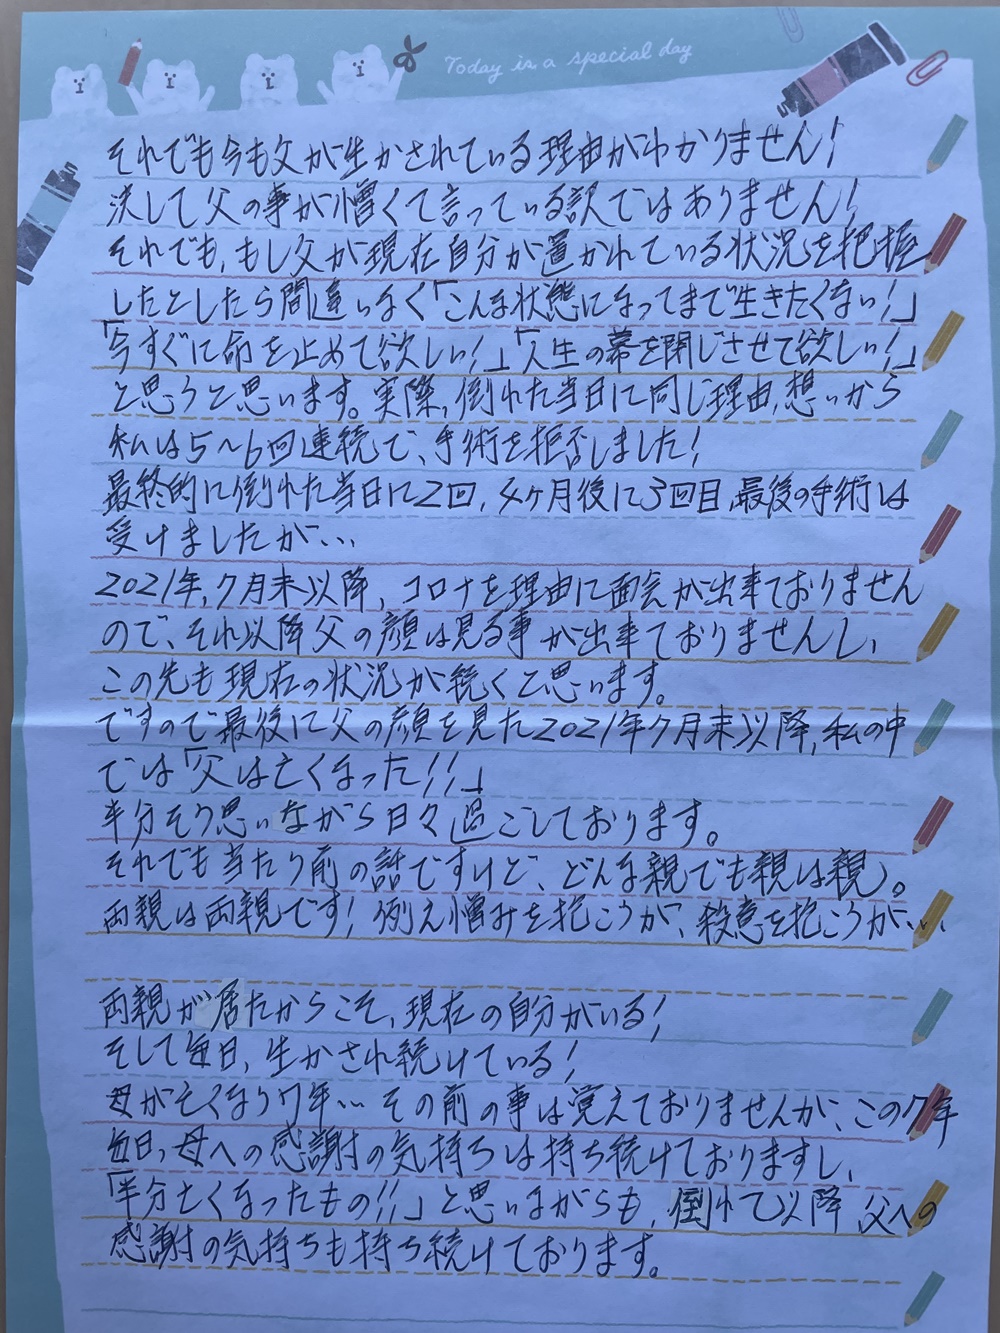 Today is a special day
それでも今も父が生かされている理由がわかりません!
決して父の事が憎くて言っている訳ではありません!
それでも、もし父が現在自分が置かれている状況を把握
したとしたら間違いなく「こんな状態になってまで生きたくない!」
「今すぐに命を止めて欲しい!」「人生の幕を閉じさせて欲しい!」
と思うと思います。実際、倒れた当日に同じ理由、想いから
私は5~6回連続で、手術を拒否しました!
最終的に倒れた当日に2回、4ヶ月後に3回目、最後の手術は
受けましたが…
2021年、7月末以降、コロナを理由に面会が出来ておりません
ので、それ以降父の顔は見る事が出来ておりませんし、
この先も現在の状況が続くと思います。
ですので最後に父の顔を見た2021年7月末以降、私の中
では「父は亡くなった!!」
半分そう思いながら日々過ごしております。
それでも当たり前の話ですけど、どんな親でも親は親)。
両親は両親です!例え憎みを抱こうが、殺意を抱こうが…
両親が居たからこそ、現在の自分がいる!
そして毎日、生かされ続けている!
母が亡くなり7年…その前の事は覚えておりませんが、この7年
毎日、母への感謝の気持ちは持ち続けておりますし、
「半分亡くなったもの!!」と思いながらも、倒れて以降、父への
感謝の気持ちも持ち続けております。